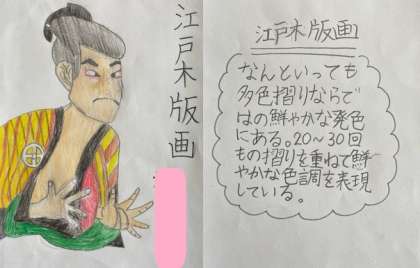 江戸木版画
江戸木版画
なんといっても
多色摺りならで
はの鮮やかな発色
にある。20~30回
もの摺りを重ねて鮮
やかな色調を表現
している。